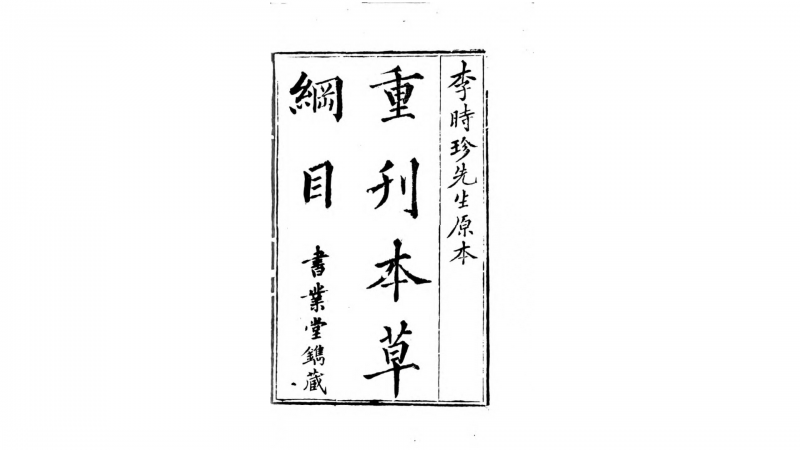 李時珍先生原本
重刊本草
綱目
書業堂鐫藏